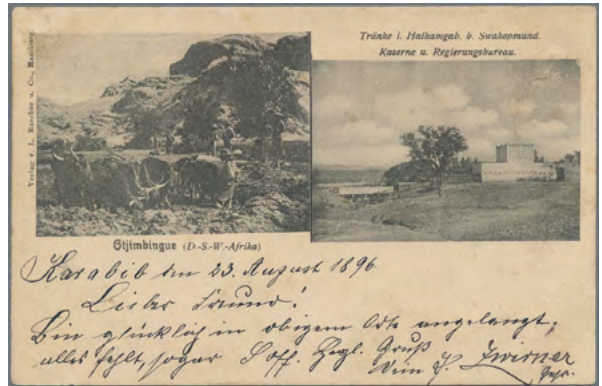 Verlag v. L. Rascher u. Co., Hamburg
Tränke i. Haikamgab. b. Swakopmund.
Kaserne u. Regierungsbureau.
Otjimbingue (D.-S.-W.-Afrika)
Karabib den 23. August 1896
Lieber Freund!
Bin glücklich in obigem Orte angelangt,
alles fehlt, sogar Soff. Herzl. Gruß
Dein Zwirner